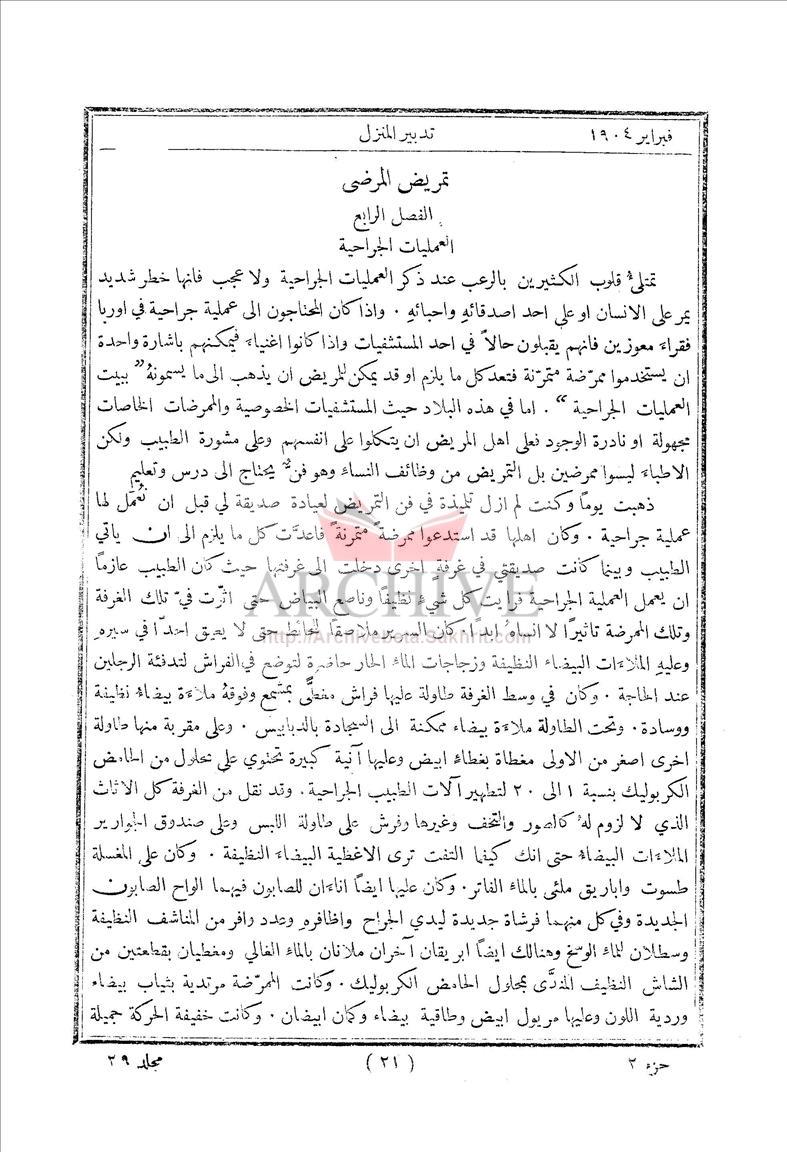 فبراير ١٩٠٤
تدبير المنزل
تمريض المرضى
الفصل الرابع
العمليات الجراحية
تمتلئُ قلوب الكثيرين بالرعب عند ذكر العمليات الجراحية ولا عجب فانها خطر شديد
يمر على الانسان او على احد اصدقائهِ واحبائهِ ٠ واذا كان المحتاجون الى عملية جراحية في اوربا
فقراءَ معوزين فانهم يقبلون حالاً في احد المستشفيات واذا كانوا اغنياءَ فيمكنهم باشارة واحدة
ان يستخدموا ممرّضة متمرّنة فتعد كل ما يلزم او قد يمكن للمريض ان يذهب الى ما يسمونهُ " ببيت
العمليات الجراحية " . اما في هذه البلاد حيث المستشفيات الخصوصية والممرضات الخاصات
مجهولة او نادرة الوجود فعلى اهل المريض ان يتكلوا على انفسهم وعلى مشورة الطبيب ولكن
الاطباءَ ليسوا ممرضين بل التمريض من وظائف النساء وهو فنٌّ يحتاج الى درس وتعليم
ذهبت يوماً وكنت لم ازل تلميذة في فن التمريض لعيادة صديقة لي قبل ان تُعمَل لها
عملية جراحية ٠ وكان اهلها قد استدعوا ممرضةً متمرنةً فاعدَّت كل ما يلزم الى ان ياتي
الطبيب وبينما كانت صديقتي في غرفة اخرى دخلت الى غرفتها حيث كان الطبيب عازماً
ان يعمل العملية الجراحية فرايت كل شيءٍ نظيفاً وناصع البياض حتى اثّرت فيّ تلك الغرفة
وتلك الممرضة تاثيراً لا انساهُ ابداً كان السرير ملاصقاً للحائط حتى لا يعيق احداً في سيره
وعليهِ الملاءَات البيضاء النظيفة وزجاجات الماء الحار حاضرة لتوضع في الفراش لتدفئة الرجلين
عند الحاجة ٠ وكان في وسط الغرفة طاولة عليها فراش مغطَّى بمشمع وفوقهُ ملاءَة بيضاءُ نظيفة
ووسادة ٠ وتحت الطاولة ملاءَة بيضاء ممكنة الى السجادة بالدبابيس ٠ وعلى مقربة منها طاولة
اخرى اصغر من الاولى مغطاة بغطاءٍ ابيض وعليها آنية كبيرة تحتوي على محلول من الحامض
الكربوليك بنسبة ١ الى ٢٠ لتطهير آلات الطبيب الجراحية ٠ وقد نقل من الغرفة كل الاثاث
الذي لا لزوم لهُ كالصور والتحف وغيرها وفرش على طاولة اللبس وعلى صندوق الجوارير
الملاءَات البيضاءُ حتى انك كيفما التفت ترى الاغطية البيضاءَ النظيفة ٠ وكان على المغسلة
طسوت واباريق ملئى بالماء الفاتر ٠ وكان عليها ايضاً اناءَان للصابون فيهما الواح الصابون
الجديدة وفي كل منهما فرشاة جديدة ليدي الجراح واظافرهِ وعدد وافر من المناشف النظيفة
وسطلان لماء الوسخ وهنالك ايضاً ابريقان آخران ملآنان بالماء الغالي ومغطيان بقطعتين من
الشاش النظيف المندَّى بمحلول الحامض الكربوليك ٠ وكانت الممرّضة مرتدية بثياب بيضاء
وردية اللون وعليها مريول ابيض وطاقية بيضاء وكمان ابيضان ٠ وكانت خفيفة الحركة جميلة
جزء ٢
( ٢١ )
مجلد ٢٩
ARCHIVE
http://Archivebeta.Sakhrit.com